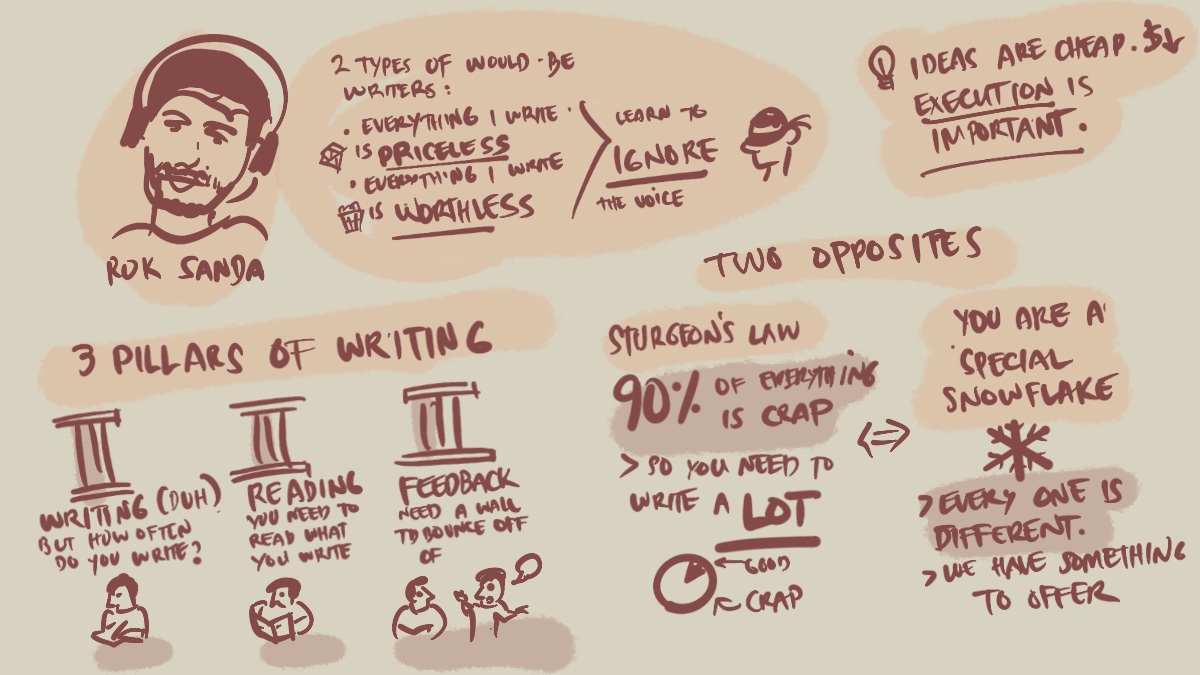 ROK SANDA
2 TYPES OF WOULD-BE
WRITERS:
• EVERYTHING I WRITE
IS PRICELESS
• EVERYTHING I WRITE
IS WORTHLESS
LEARN TO
IGNORE
THE VOICE
IDEAS ARE CHEAP. $↓
EXECUTION IS
IMPORTANT.
3 PILLARS OF WRITING
WRITING (DUH)
BUT HOW OFTEN
DO YOU WRITE?
READING
YOU NEED TO
READ WHAT
YOU WRITE
FEEDBACK
NEED A WALL
TO BOUNCE OFF
OF
TWO OPPOSITES
STURGEON'S LAW
90% OF EVERYTHING
IS CRAP
> SO YOU NEED TO
WRITE A LOT
GOOD
CRAP
YOU ARE A
SPECIAL
SNOWFLAKE
> EVERY ONE IS
DIFFERENT.
> WE HAVE SOMETHING
TO OFFER